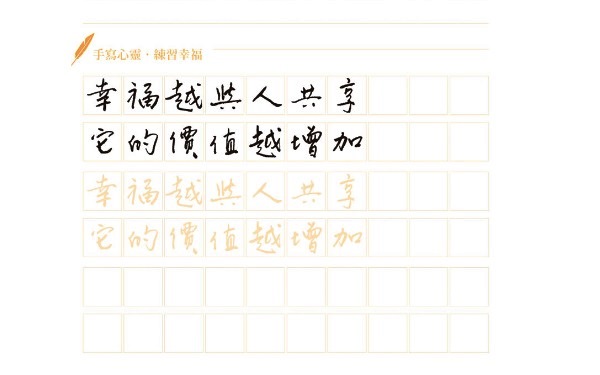 手寫心靈·練習幸福
幸福越與人共享
它的價值越增加
幸福越與人共享
它的價值越增加